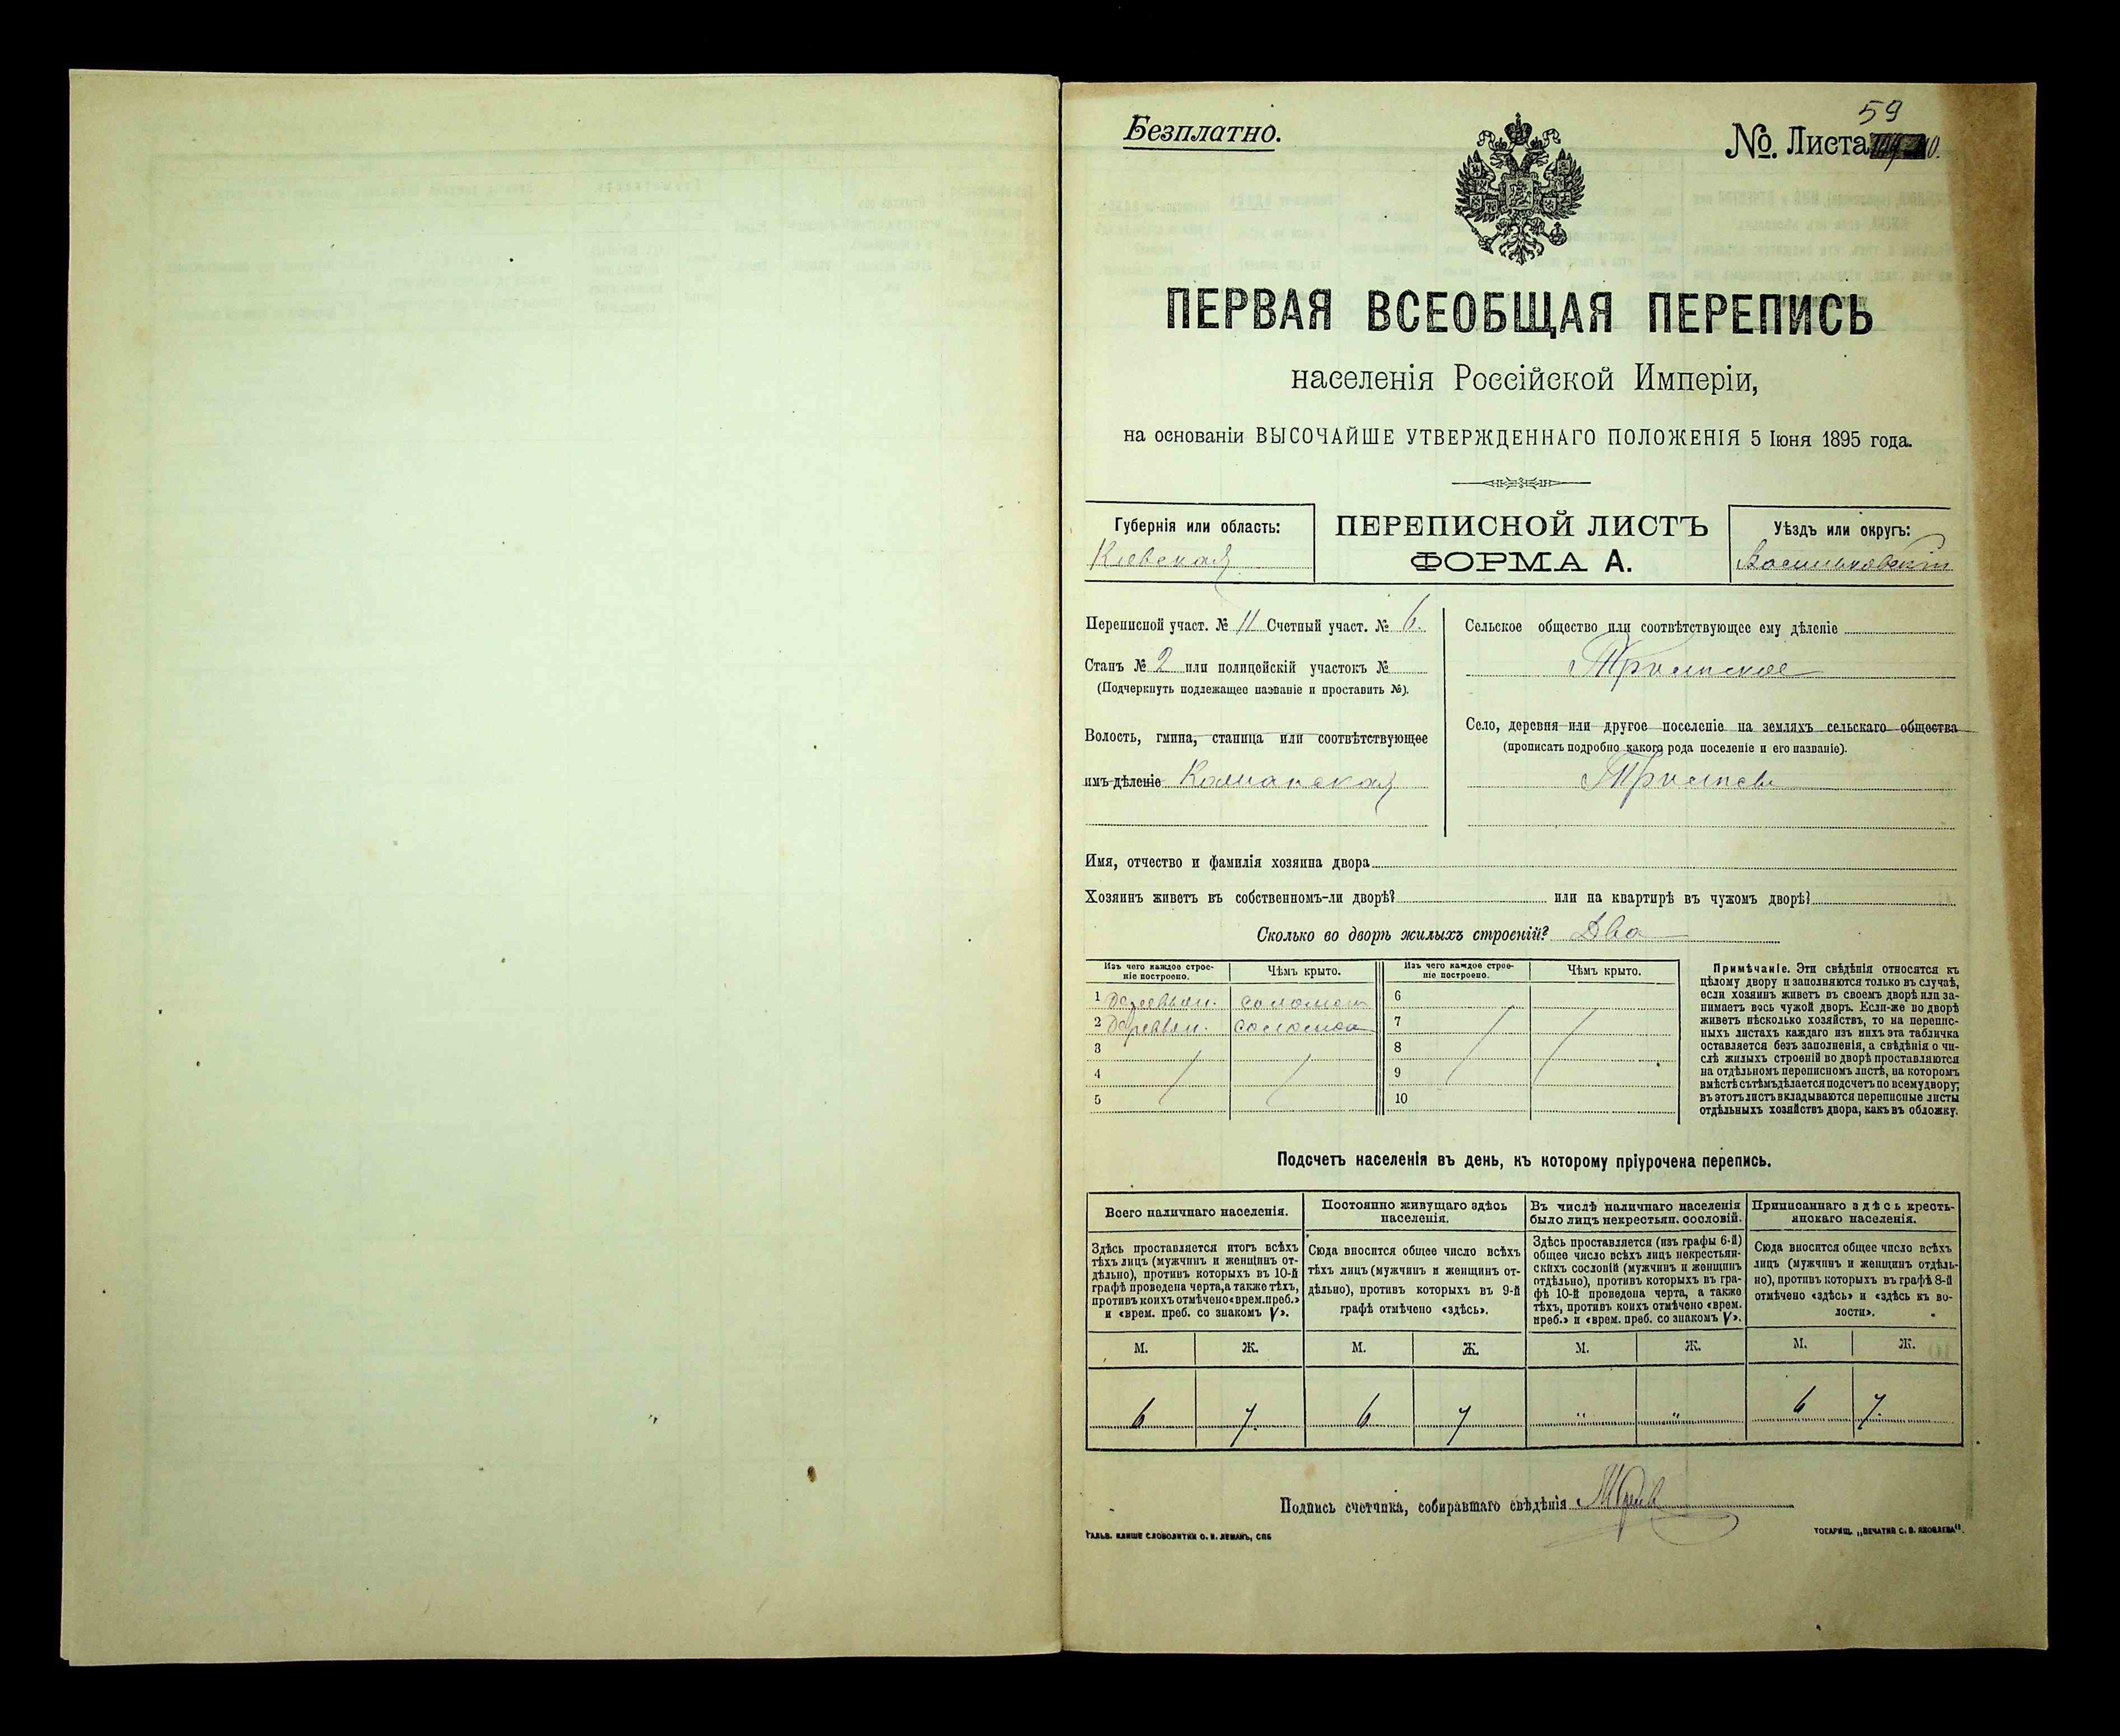 Безплатно.
59
№. Листа
ПЕРВАЯ ВСЕОБЩАЯ ПЕРЕПИСЬ
населенія Россійской Имперіи,
на основаніи ВЫСОЧАЙШЕ УТВЕРЖДЕННАГО ПОЛОЖЕНІЯ 5 Іюня 1895 года.
Губернія или область:
Кіевская
ПЕРЕПИСНОЙ ЛИСТЪ
ФОРМА А.
Уѣздъ или округъ:
Васильковскій
Переписной участ. № 11 Счетный участ. № 6.
Станъ № 2 или полицейскій участокъ №
(Подчеркнуть подлежащее названіе и проставить №).
Волость, гмина, станица или соотвѣтствующее
имъ дѣленіе
Сельское общество или соотвѣтствующее ему дѣленіе
Село, деревня или другое поселеніе на земляхъ сельскаго общества
(прописать подробно какого рода поселеніе и его названіе).
Имя, отчество и фамилія хозяина двора
Хозяинъ живетъ въ собственномъ-ли дворѣ? или на квартирѣ въ чужомъ дворѣ?
Сколько во дворѣ жилыхъ строеній? Два
Изъ чего каждое строе-
ніе построено.
Чѣмъ крыто.
Изъ чего каждое строе-
ніе построено.
Чѣмъ крыто.
1 Деревян. соломой 6
2 Деревян. соломой 7
3 8
4 9
5 10
Примѣчаніе. Эти свѣдѣнія относятся къ
цѣлому двору и заполняются только въ случаѣ,
если хозяинъ живетъ въ своемъ дворѣ или за-
нимаетъ весь чужой дворъ. Если-же во дворѣ
живетъ нѣсколько хозяйствъ, то на перепис-
ныхъ листахъ каждаго изъ нихъ эта табличка
оставляется безъ заполненія, а свѣдѣнія о чи-
слѣ жилыхъ строеній во дворѣ проставляются
на отдѣльномъ переписномъ листѣ, на которомъ
вмѣстѣ съ тѣмъ дѣлается подсчетъ по всему двору;
въ этотъ листъ вкладываются переписные листы
отдѣльныхъ хозяйствъ двора, какъ въ обложку.
Подсчетъ населенія въ день, къ которому пріурочена перепись.
Всего наличнаго населенія.
Здѣсь проставляется итогъ всѣхъ
тѣхъ лицъ (мужчинъ и женщинъ от-
дѣльно), противъ которыхъ въ 10-й
графѣ проведена черта, а также тѣхъ,
противъ коихъ отмѣчено «врем. преб.»
и «врем. преб. со знакомъ V».
Постоянно живущаго здѣсь
населенія.
Сюда вносится общее число всѣхъ
тѣхъ лицъ (мужчинъ и женщинъ от-
дѣльно), противъ которыхъ въ 9-й
графѣ отмѣчено «здѣсь».
Въ числѣ наличнаго населенія
было лицъ некрестьян. сословій.
Здѣсь проставляется (изъ графы 6-й)
общее число всѣхъ лицъ некрестьян-
скихъ сословій (мужчинъ и женщинъ
отдѣльно), противъ которыхъ въ гра-
фѣ 10-й проведена черта, а также
тѣхъ, противъ коихъ отмѣчено «врем.
преб.» и «врем. преб. со знакомъ V».
Приписаннаго здѣсь кресть-
янскаго населенія.
Сюда вносится общее число всѣхъ
лицъ (мужчинъ и женщинъ отдѣль-
но), противъ которыхъ въ графѣ 8-й
отмѣчено «здѣсь» и «здѣсь къ во-
лости».
М. Ж. М. Ж. М. Ж. М. Ж.
6 7 6 7 " " 6 7.
Подпись счетчика, собиравшаго свѣдѣнія
ГАЛЬВ. КЛИШЕ СЛОВОЛИТНИ О. И. ЛЕМАНЪ, СПБ
ТОВАРИЩ. „ПЕЧАТНЯ С. П. ЯКОВЛЕВА".